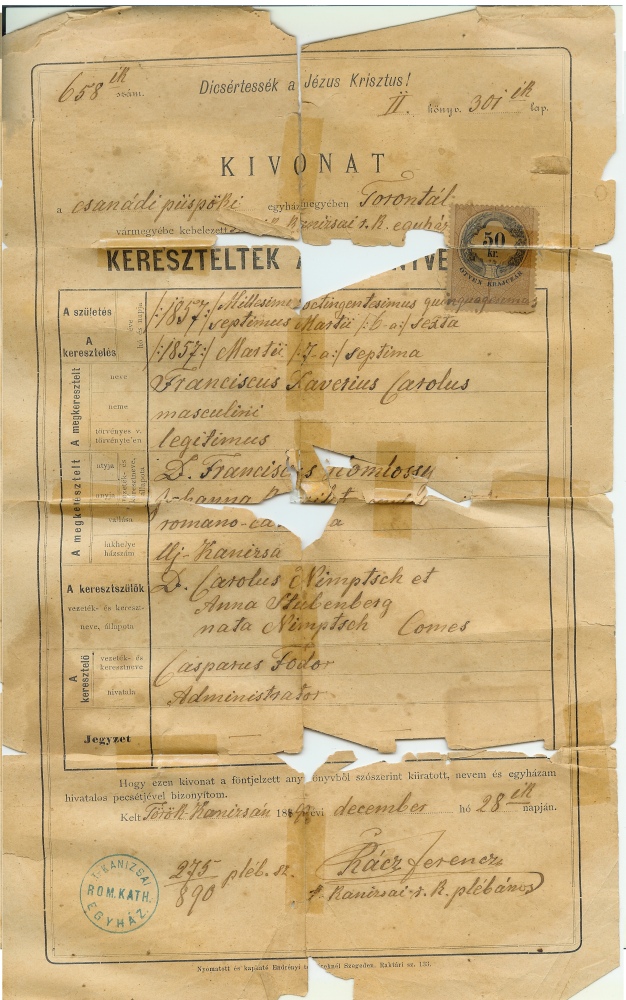 658 ik szám.
Dicsértessék a Jézus Krisztus!
II. könyv. 301 ik lap.
KIVONAT
a csanádi püspöki egyházmegyében Torontál
vármegyébe kebelezett Kanizsai r. k. egyház
KERESZTELTEK A NYVE
50
KR.
ÖTVEN KRAJCZÁR
A születés
éve
hó és napja
/:1857:/ Millesimo octingentesimus quinquagesimus
septimus Martii /:6-a:/ sexta
A keresztelés
/:1857:/ Martii /:7-a:/ septima
A megkeresztelt
neve
Franciscus Xaverius Carolus
neme
masculini
törvényes v.
törvényte'en
legitimus
A megkeresztelt
atyja
vezeték- és
keresztneve,
állapota
D. Franciscus
anyja
Johanna
vallása
romano-ca a
lakhelye
házszám
Uj-Kanizsa
A keresztszülők
vezeték- és kereszt-
neve, állapota
D. Carolus Nimptsch et
Anna Stubenberg
nata Nimptsch Comes
A keresztelő
vezeték- és
keresztneve
Casparus Fodor
hivatala
Administrator
Jegyzet
Hogy ezen kivonat a föntjelzett any önyvből szószerint kiiratott, nevem és egyházam
hivatalos pecsétjével bizonyítom.
Kelt Török-Kanizsán 18 évi december hó 28 ik napján.
275 pléb. sz.
890
Rácz Ferencz
t. Kanizsai r. k. plébános
T-KANIZSAI
ROM.KATH.
EGYHÁZ.
Nyomatott és kapható Endrényi eknél Szegeden. Raktári sz. 133.